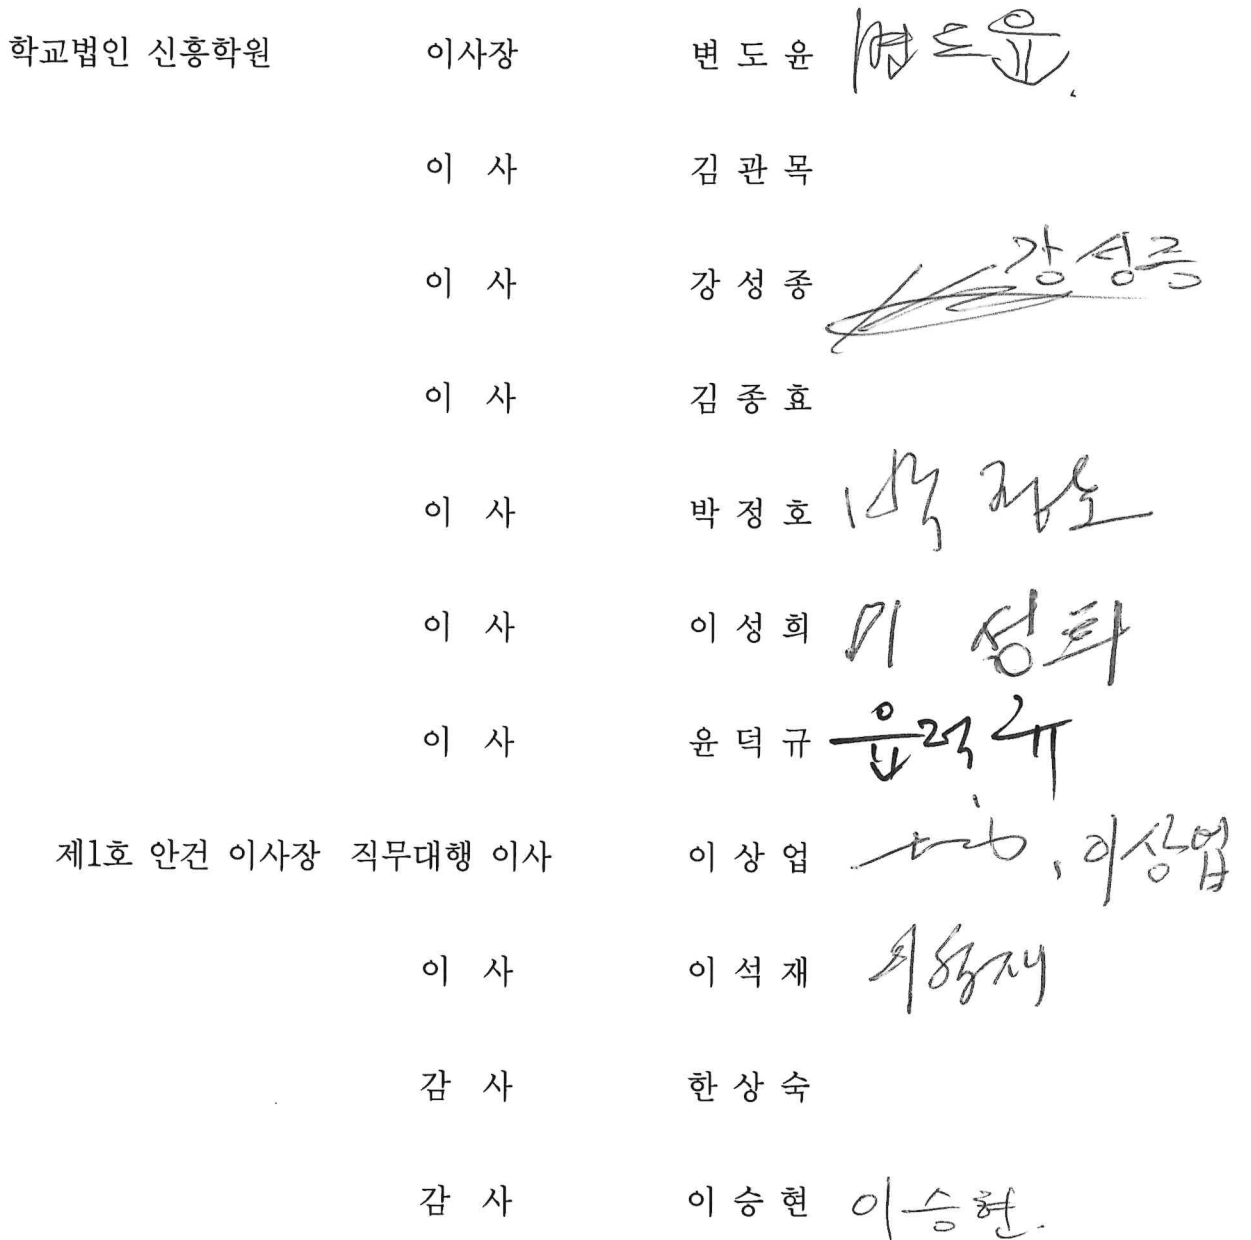 학교법인 신흥학원 이사장 변 도 윤 변도윤.
이 사 김 관 목
이 사 강 성 종 강성종
이 사 김 종 효
이 사 박 정 호 박정호
이 사 이 성 희 이성희
이 사 윤 덕 규 윤덕규
제1호 안건 이사장 직무대행 이사 이 상 업 , 이상업
이 사 이 석 재 이석재
감 사 한 상 숙
감 사 이 승 현 이승현.